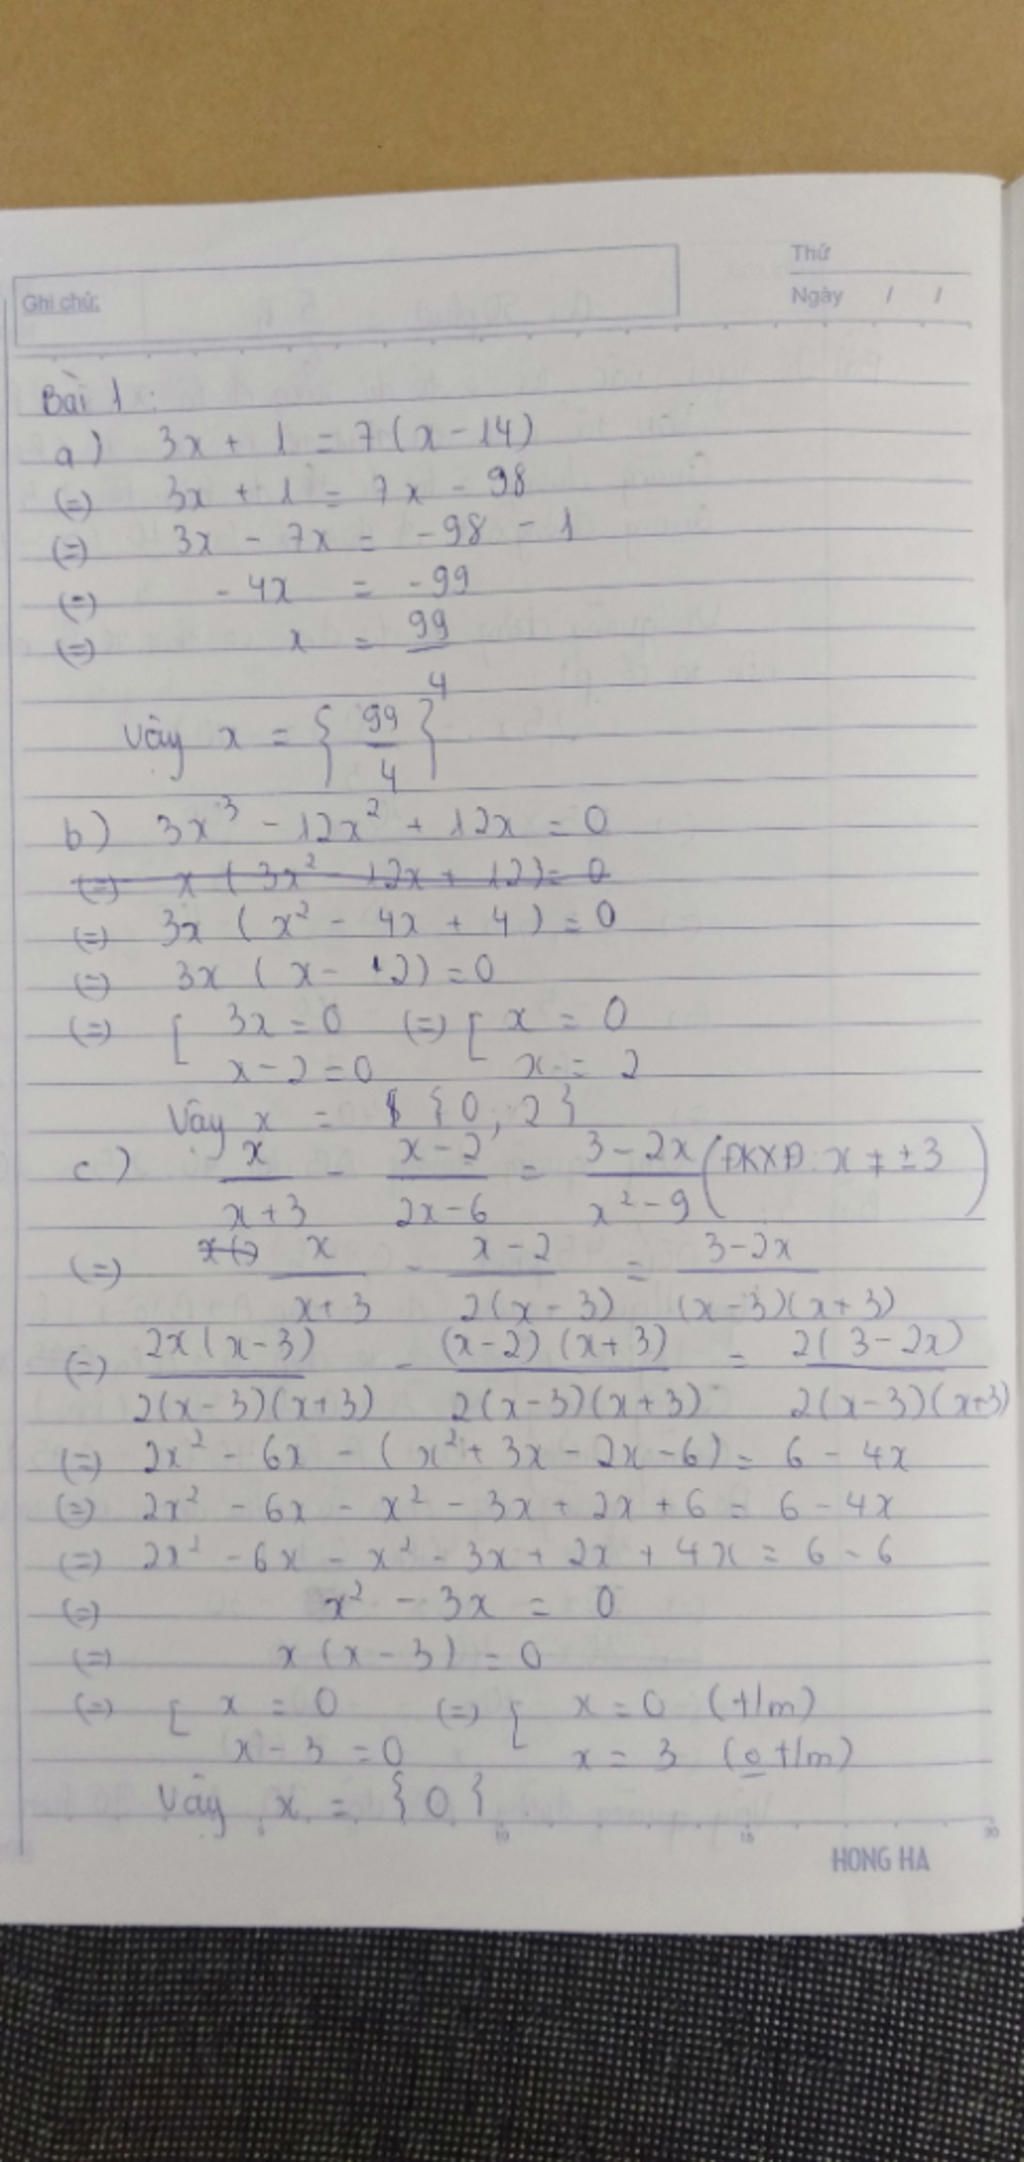 Thứ
Ghi chú:
Ngày / /
Bài 1:
a) 3x + 1 = 7(x - 14)
(=) 3x + 1 = 7x - 98
(=) 3x - 7x = -98 - 1
(=) - 4x = -99
(=) x = 99/4
Vây x = { 99/4 }
b) 3x³ - 12x² + 12x = 0
(=) x ( 3x² - 12x + 12) = 0
(=) 3x ( x² - 4x + 4 ) = 0
(=) 3x ( x - 2) = 0
(=) [ 3x = 0 (=) [ x = 0
x - 2 = 0 x = 2
Vây x = { 0, 2 }
c) x/(x+3) - (x-2)/(2x-6) = (3-2x)/(x²-9) (ĐKXĐ: x ≠ ±3)
(=) x/(x+3) - (x-2)/(2(x-3)) = (3-2x)/((x-3)(x+3))
(=) 2x(x-3)/(2(x-3)(x+3)) - (x-2)(x+3)/(2(x-3)(x+3)) = 2(3-2x)/(2(x-3)(x+3))
(=) 2x² - 6x - ( x² + 3x - 2x - 6) = 6 - 4x
(=) 2x² - 6x - x² - 3x + 2x + 6 = 6 - 4x
(=) 2x² - 6x - x² - 3x + 2x + 4x = 6 - 6
(=) x² - 3x = 0
(=) x (x - 3) = 0
(=) [ x = 0 (=) [ x = 0 (t/m)
x - 3 = 0 x = 3 (o t/m)
Vây x = { 0 }
10 15 20
HONG HA